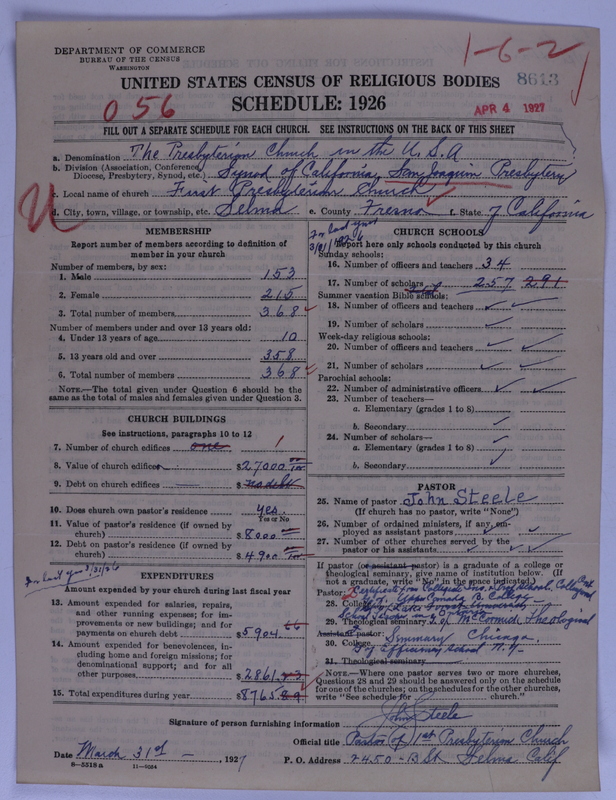 DEPARTMENT OF COMMERCE
BUREAU OF THE CENSUS
WASHINGTON
1-6-2
UNITED STATES CENSUS OF RELIGIOUS BODIES
8613
SCHEDULE: 1926
056
APR 4 1927
FILL OUT A SEPARATE SCHEDULE FOR EACH CHURCH. SEE INSTRUCTIONS ON THE BACK OF THIS SHEET
a. Denomination The Presbyterian Church in the U.S.A
b. Division (Association, Conference, Diocese, Presbytery, Synod, etc.) Synod of California, San Joaquin Presbytery
c. Local name of church First Presbyterian Church
U
d. City, town, village, or township, etc. Selma e. County Fresno f. State of California
MEMBERSHIP
Report number of members according to definition of member in your church
Number of members, by sex:
1. Male 153
2. Female 215
3. Total number of members 368
Number of members under and over 13 years old:
4. Under 13 years of age 10
5. 13 years old and over 358
6. Total number of members 368
NOTE.—The total given under Question 6 should be the same as the total of males and females given under Question 3.
CHURCH BUILDINGS
See instructions, paragraphs 10 to 12
7. Number of church edifices one 1
8. Value of church edifices $27000
9. Debt on church edifices $no debt
10. Does church own pastor's residence? yes.
Yes or No
11. Value of pastor's residence (if owned by church) $8000
12. Debt on pastor's residence (if owned by church) $4900
For last year 3/31/26
EXPENDITURES
Amount expended by your church during last fiscal year
13. Amount expended for salaries, repairs, and other running expenses; for improvements or new buildings; and for payments on church debt $5904 66
14. Amount expended for benevolences, including home and foreign missions; for denominational support; and for all other purposes $2861
15. Total expenditures during year $8765 89
For last year
3/31/1926
CHURCH SCHOOLS
Report here only schools conducted by this church
Sunday schools:
16. Number of officers and teachers 34
17. Number of scholars 257 291
Summer vacation Bible schools:
18. Number of officers and teachers
19. Number of scholars
Week-day religious schools:
20. Number of officers and teachers
21. Number of scholars
Parochial schools:
22. Number of administrative officers
23. Number of teachers—
a. Elementary (grades 1 to 8)
b. Secondary
24. Number of scholars—
a. Elementary (grades 1 to 8)
b. Secondary
PASTOR
25. Name of pastor John Steele
(If church has no pastor, write "None")
26. Number of ordained ministers, if any, employed as assistant pastors
27. Number of other churches served by the pastor or his assistants
If pastor (or assistant pastor) is a graduate of a college or theological seminary, give name of institution below. (If not a graduate, write "No" in the space indicated.)
Pastor:
28. College
29. Theological seminary G. of McCormick Theological
Assistant pastor: Seminary Chicago.
30. College
31. Theological seminary
NOTE.—Where one pastor serves two or more churches, Questions 28 and 29 should be answered only on the schedule for one of the churches; on the schedules for the other churches, write "See schedule for church."
Signature of person furnishing information John Steele
Official title Pastor of 1st Presbyterian Church
Date March 31st, 1927
P. O. Address 2450-B St Selma Calif
8-5518 a 11-9084